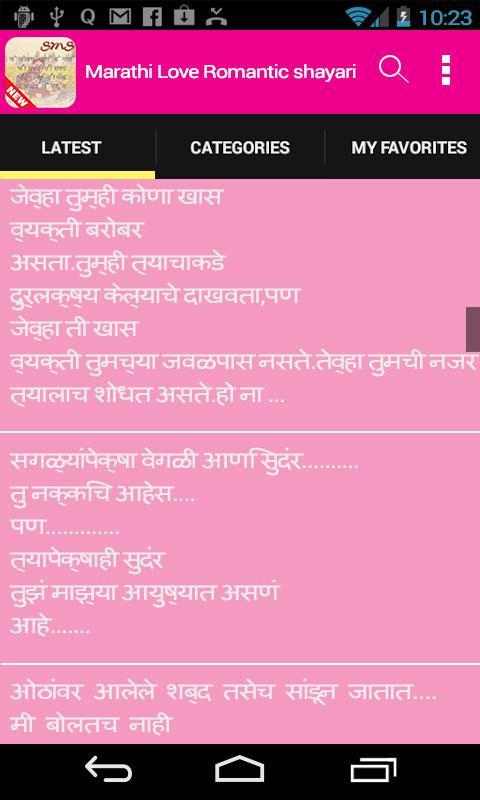 10:23
SMS
NEW
Marathi Love Romantic shayari
LATEST CATEGORIES MY FAVORITES
जेव्हा तुम्ही कोणा खास
व्यक्ती बरोबर
असता.तुम्ही त्याचाकडे
दुर्लक्ष्य केल्याचे दाखवता,पण
जेव्हा ती खास
व्यक्ती तुमच्या जवळपास नसते.तेव्हा तुमची नजर
त्यालाच शोधत असते.हो ना ...
सगळ्यांपेक्षा वेगळी आणि सुदंर..........
तु नक्कचि आहेस....
पण.............
त्यापेक्षाही सुदंर
तुझं माझ्या आयुष्यात असणं
आहे.......
ओठांवर आलेले शब्द तसेच सांडून जातात....
मी बोलतच नाही